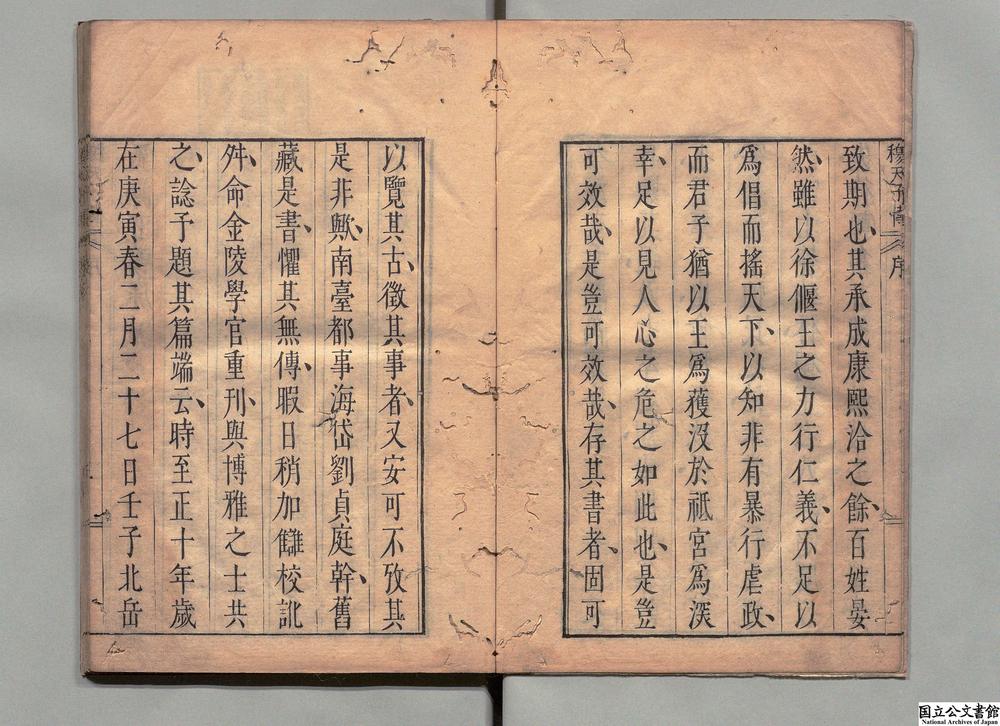 穆天子傳 序
致期也其承成康熙洽之餘百姓晏
然雖以徐偃王之力行仁義不足以
爲倡而搖天下以知非有暴行虐政
而君子猶以王爲獲沒於祗宮爲深
幸足以見人心之危之如此也是豈
可效哉是豈可效哉存其書者固可
以覽其古徵其事者又安可不攷其
是非歟南臺都事海岱劉貞庭幹舊
藏是書懼其無傳暇日稍加讎校訛
舛命金陵學官重刋與博雅之士共
之諗予題其篇端云時至正十年歲
在庚寅春二月二十七日壬子北岳
国立公文書館
National Archives of Japan